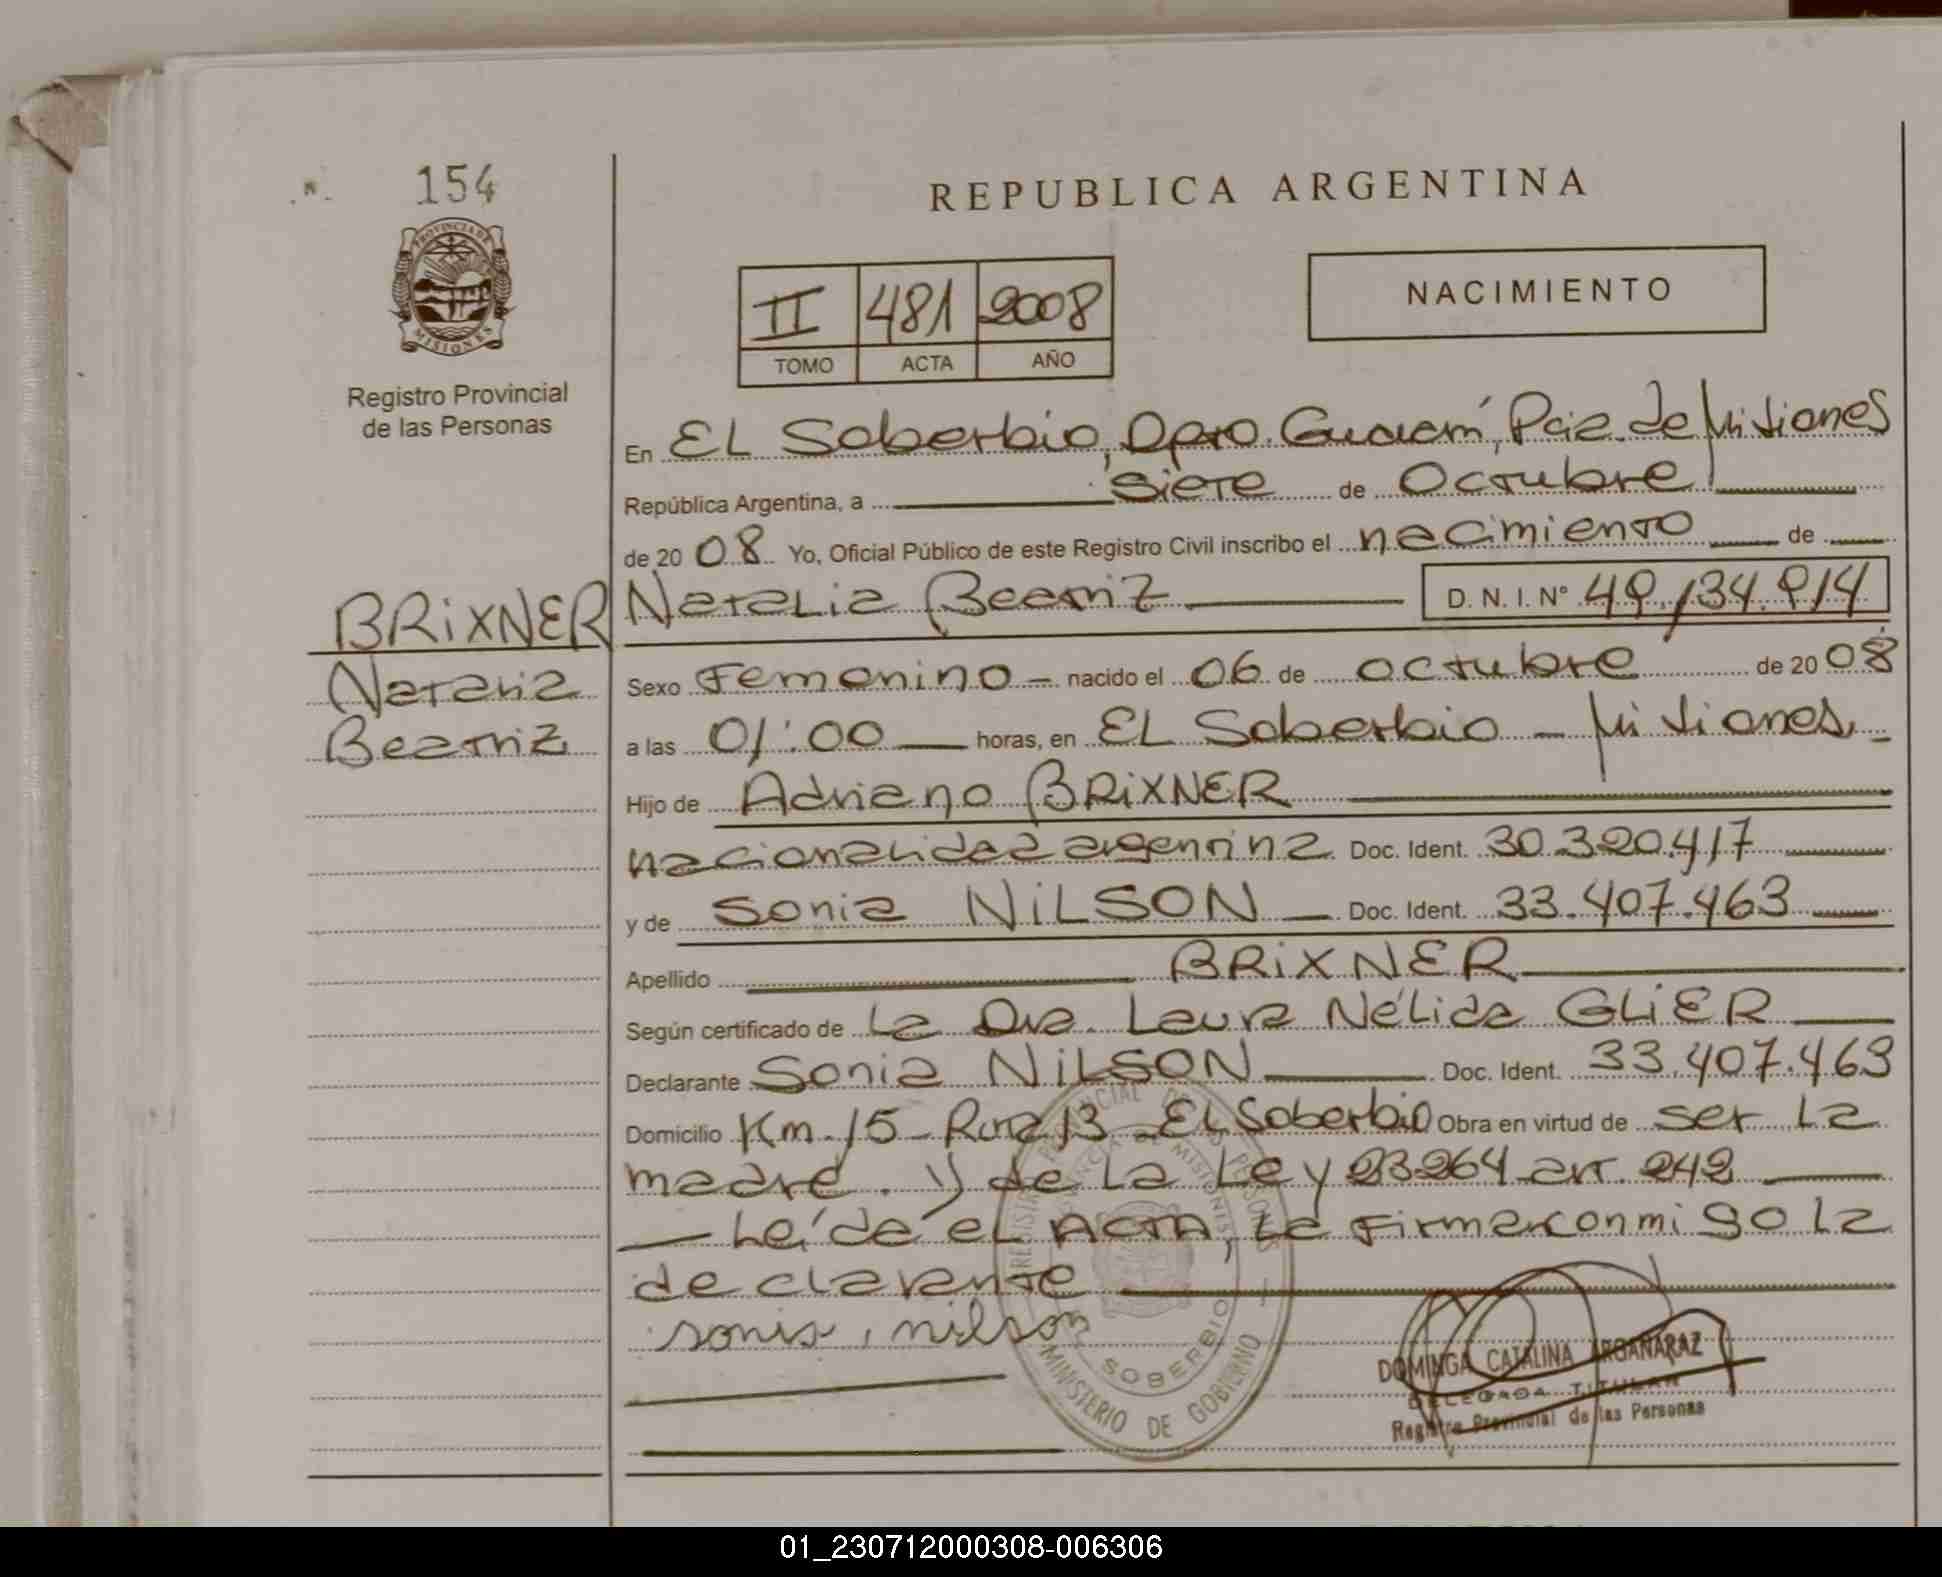 154
REPUBLICA ARGENTINA
PROVINCIA DE MISIONES
Registro Provincial
de las Personas
II 481 2008
TOMO ACTA AÑO
NACIMIENTO
En EL Soberbio, Dpto. Guaraní, Pcia. de Misiones
República Argentina, a siete de Octubre
de 2008 Yo, Oficial Público de este Registro Civil inscribo el nacimiento de
BRIXNER Natalia Beatriz D. N. I. N° 49.134.914
Natalia
Beatriz
Sexo Femenino nacido el 06 de octubre de 2008
a las 01:00 horas, en EL Soberbio - Misiones.
Hijo de Adriano BRIXNER
nacionalidad argentina Doc. Ident. 30.320.417
y de Sonia NILSON Doc. Ident. 33.407.463
Apellido BRIXNER
Según certificado de La Dra. Laura Nélida GLIER
Declarante Sonia NILSON Doc. Ident. 33.407.463
Domicilio Km. 15 - Ruta 13 - EL Soberbio Obra en virtud de ser La
madre. y de La Ley 23264 art. 242
Leída el ACTA, La Firma conmigo la
declarante
sonia nilson
SOBERBIO
MINISTERIO DE GOBIERNO
DOMINGA CATALINA ARGAÑARAZ
DELEGADA TITULAR
Registro Provincial de las Personas
01_230712000308-006306